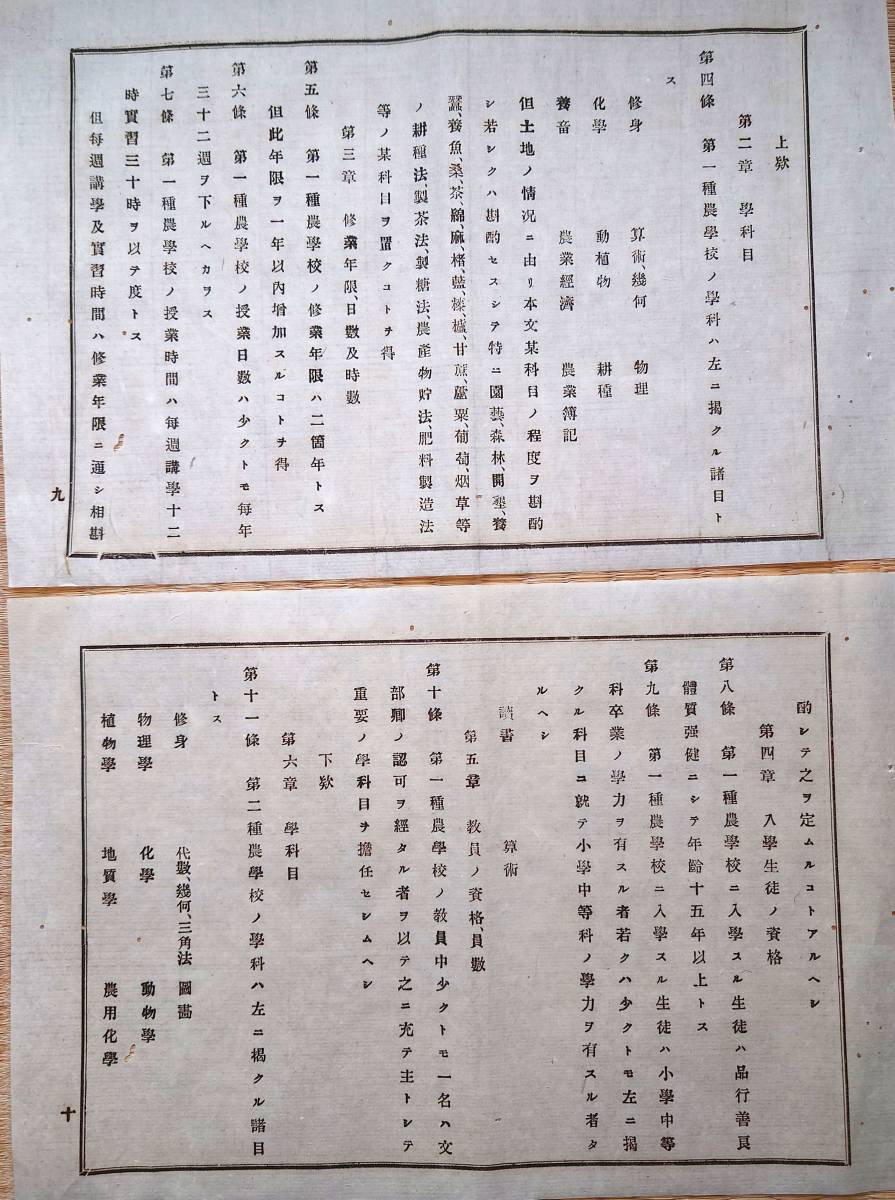 上欵
第二章　學科目
第四條　第一種農學校ノ學科ハ左ニ揭クル諸目ト
ス
修身　算術、幾何　物理
化學　動植物　耕種
養畜　農業經濟　農業簿記
但土地ノ情况ニ由リ本文某科目ノ程度ヲ斟酌
シ若シクハ斟酌セスシテ特ニ園藝、森林、開墾、養
蠶、養魚、桑、茶、綿、麻、楮、藍、榛、櫨、甘蔗、蘆粟、葡萄、烟草等
ノ耕種法、製茶法、製糖法、農產物貯法、肥料製造法
等ノ某科目ヲ置クコトヲ得
第三章　修業年限、日數及時數
第五條　第一種農學校ノ修業年限ハ二箇年トス
但此年限ヲ一年以內增加スルコトヲ得
第六條　第一種農學校ノ授業日數ハ少クトモ每年
三十二週ヲ下ルヘカラス
第七條　第一種農學校ノ授業時間ハ每週講學十二
時實習三十時ヲ以テ度トス
但每週講學及實習時間ハ修業年限ニ通シ相斟
九
酌シテ之ヲ定ムルコトアルヘシ
第四章　入學生徒ノ資格
第八條　第一種農學校ニ入學スル生徒ハ品行善良
體質强健ニシテ年齡十五年以上トス
第九條　第一種農學校ニ入學スル生徒ハ小學中等
科卒業ノ學力ヲ有スル者若クハ少クトモ左ニ揭
クル科目ニ就テ小學中等科ノ學力ヲ有スル者タ
ルヘシ
讀書　算術
第五章　敎員ノ資格、員數
第十條　第一種農學校ノ敎員中少クトモ一名ハ文
部卿ノ認可ヲ經タル者ヲ以テ之ニ充テ主トシテ
重要ノ學科目ヲ擔任セシムヘシ
下欵
第六章　學科目
第十一條　第二種農學校ノ學科ハ左ニ揭クル諸目
トス
修身　代數、幾何、三角法　圖畵
物理學　化學　動物學
植物學　地質學　農用化學
十